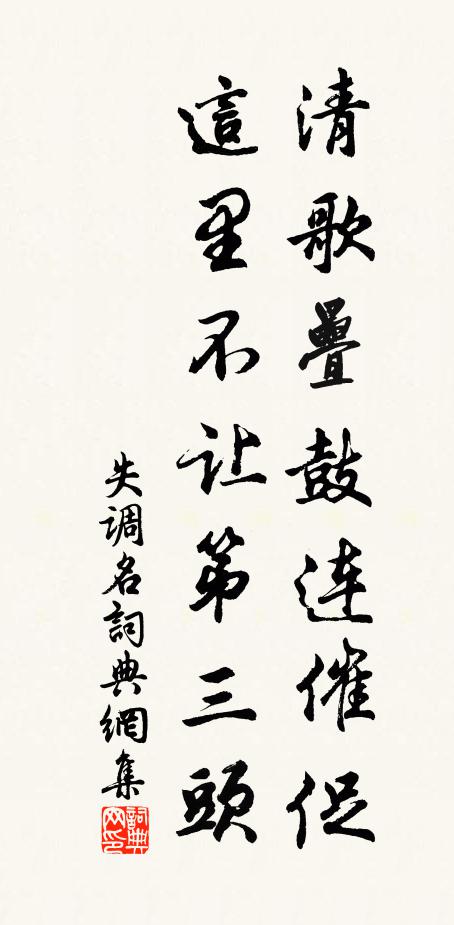 清歌疊鼓连催促
這里不让第三頭
失调名詞典網集
詞典网印